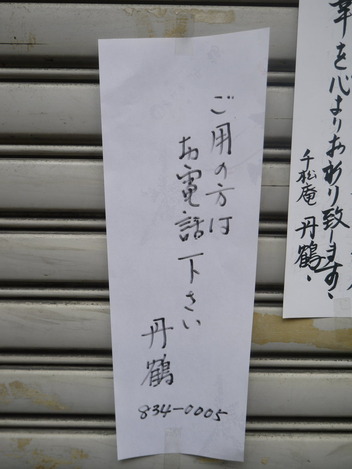 幸を心よりお祈り致します、
千松庵 丹鶴、
ご用の方は
お電話下さい
丹鶴
834-0005